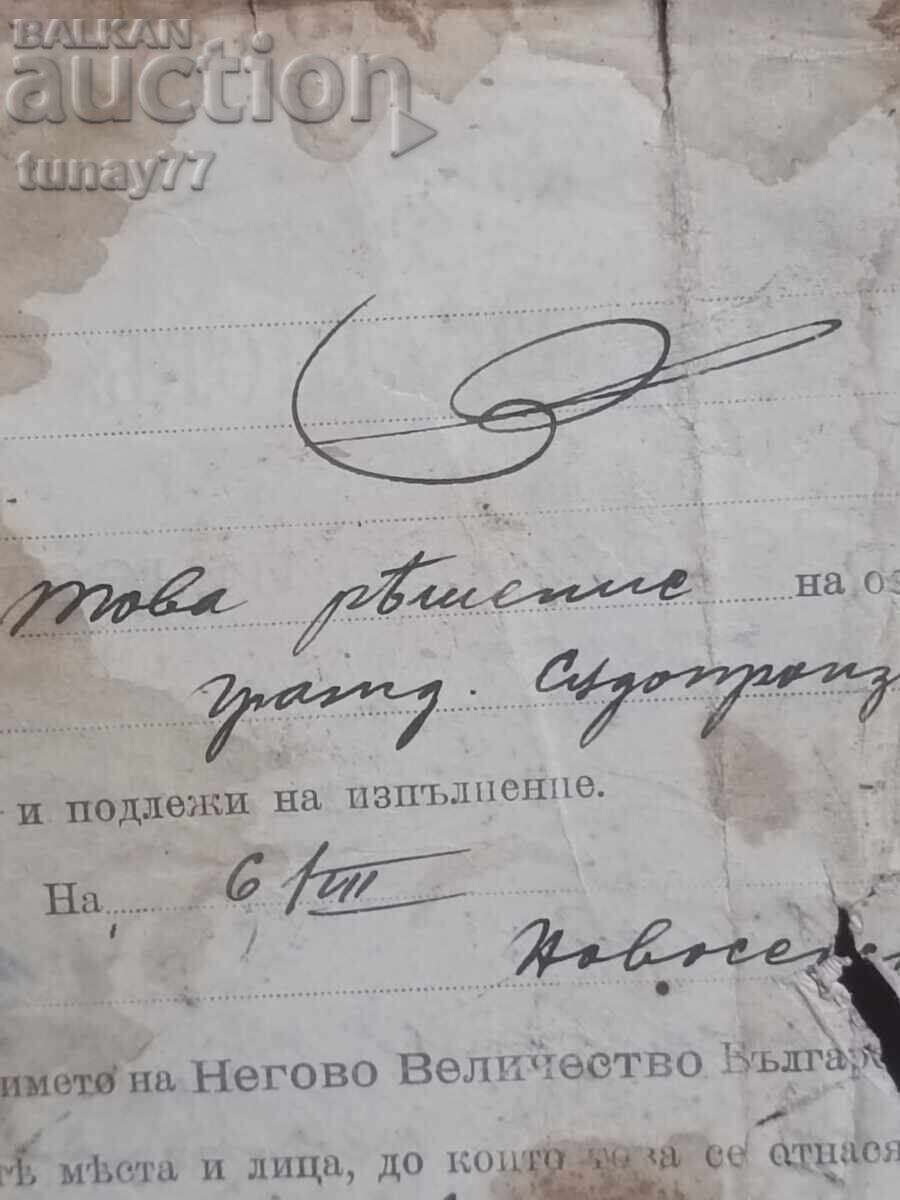 BALKAN
auction
tunay77
това рѣшение на оз
гражд. Съдопроиз
и подлежи на изпълнение.
На 6/VIII
Новосел
името на Негово Величество Бълга
тѣ мѣста и лица, до които това се отнася